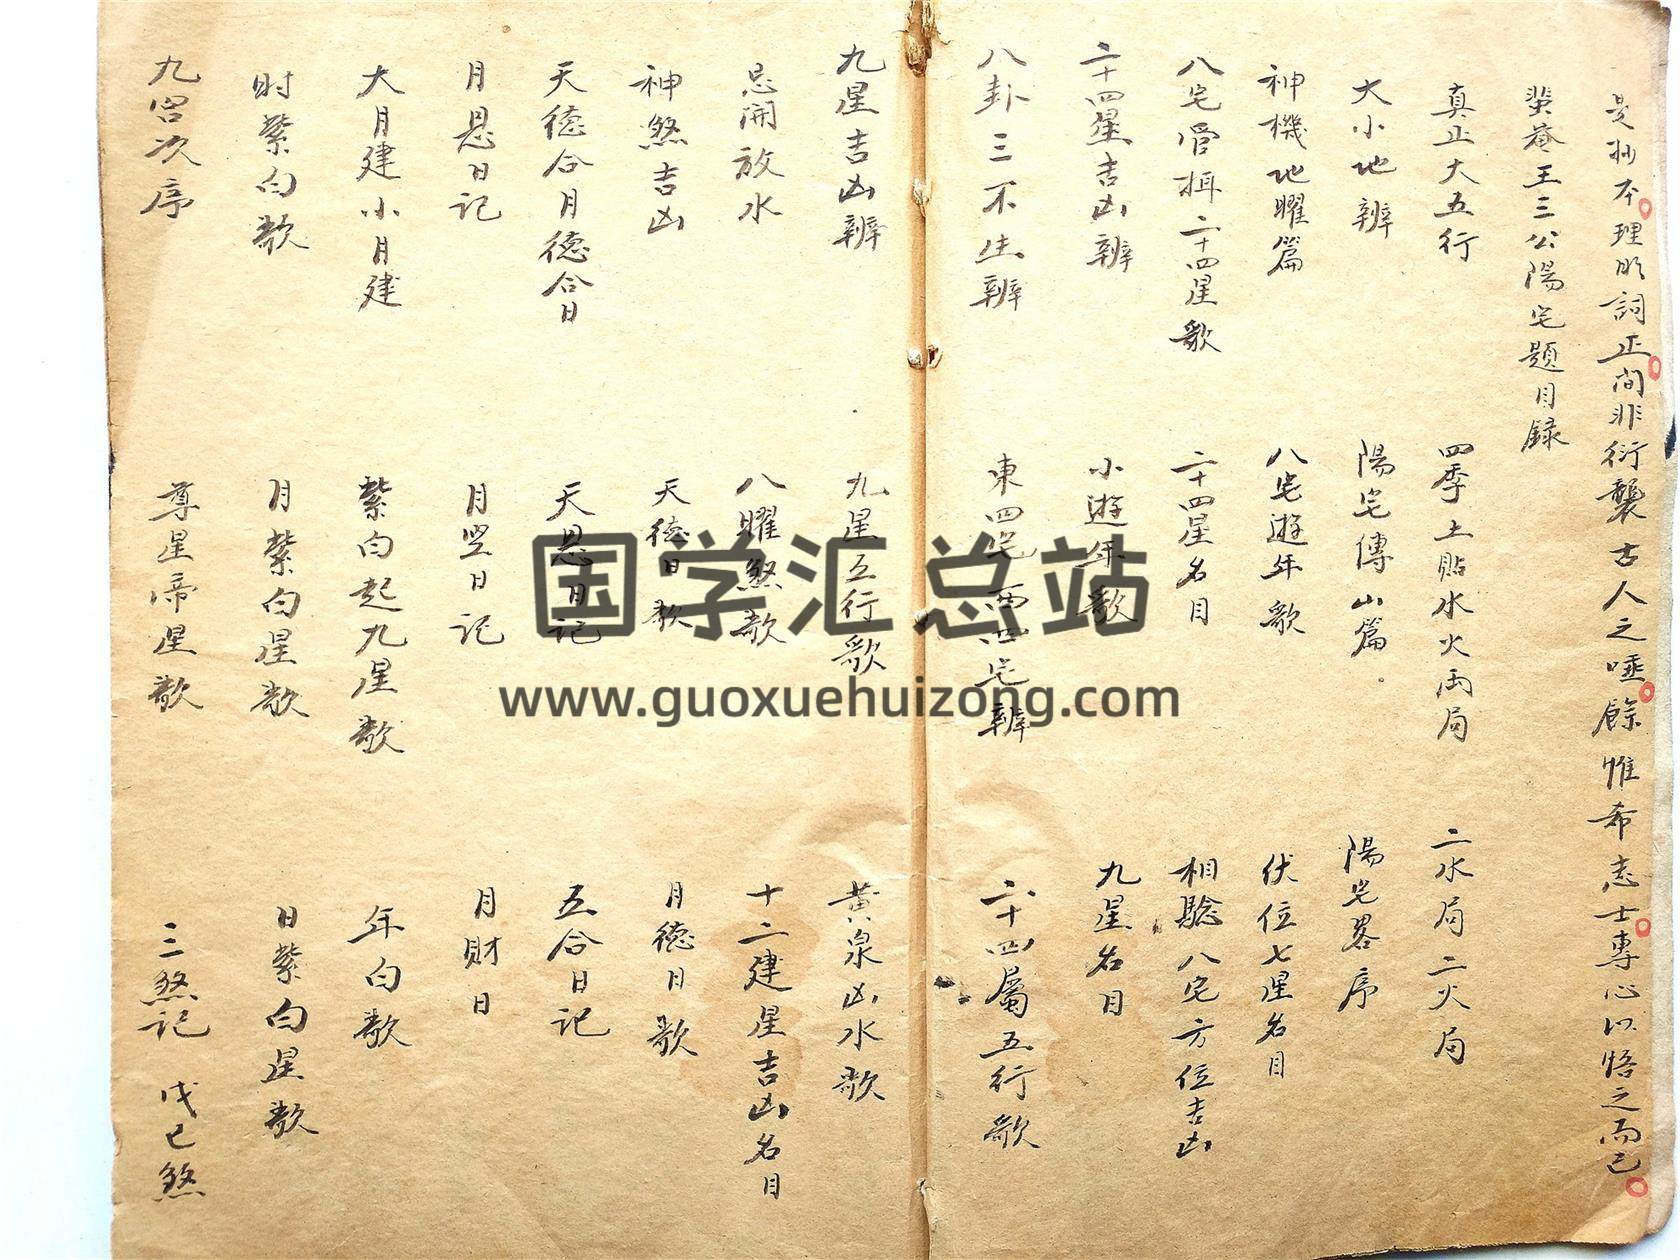 是抄本理明詞正間非衍襲古人之唾餘惟希志士專心以悟之而已
蜚菴王三公陽宅題目録
真正大五行 四季土貼水火両局 二水局二火局
大小地辨 陽宅傳山篇 陽宅畧序
神機地曜篇 八宅遊年歌 伏位七星名目
八宅管揖二十四星歌 二十四星名目 相驗八宅方位吉凶
二十四星吉凶辨 小遊年歌 九星名目
八卦三不生辨 東四宅西四宅辨 六十四屬五行歌
九星吉凶辨 九星五行歌 黄泉凶水歌
忌開放水 八曜煞歌 十二建星吉凶名目
神煞吉凶 天德日歌 月德日歌
天德合月德合日 天恩日記 五合日記
月恩日記 月空日記 月財日
大月建小月建 紫白起九星歌 年白歌
时紫白歌 月紫白星歌 日紫白星歌
九宫次序 尊星帝星歌 三煞記 戊己煞
国学汇总站
www.guoxuehuizong.com